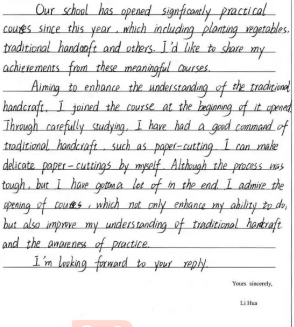 Our school has opened signficantly practical
coures since this year, which including planting vegetables,
traditional handcraft and others. I'd like to share my
achievements from these meaningful courses.
Aiming to enhance the understanding of the traditional
handcraft, I joined the course at the beginning of it opened.
Through carefully studying, I have had a good command of
traditional handcraft, such as paper-cutting. I can make
delicate paper-cuttings by myself. Although the process was
tough, but I have gotten a lot of in the end. I admire the
opening of coures, which not only enhance my ability to do,
but also improve my understanding of traditional handcraft
and the awareness of practice.
I'm looking forward to your reply.
Yours sincerely,
Li Hua